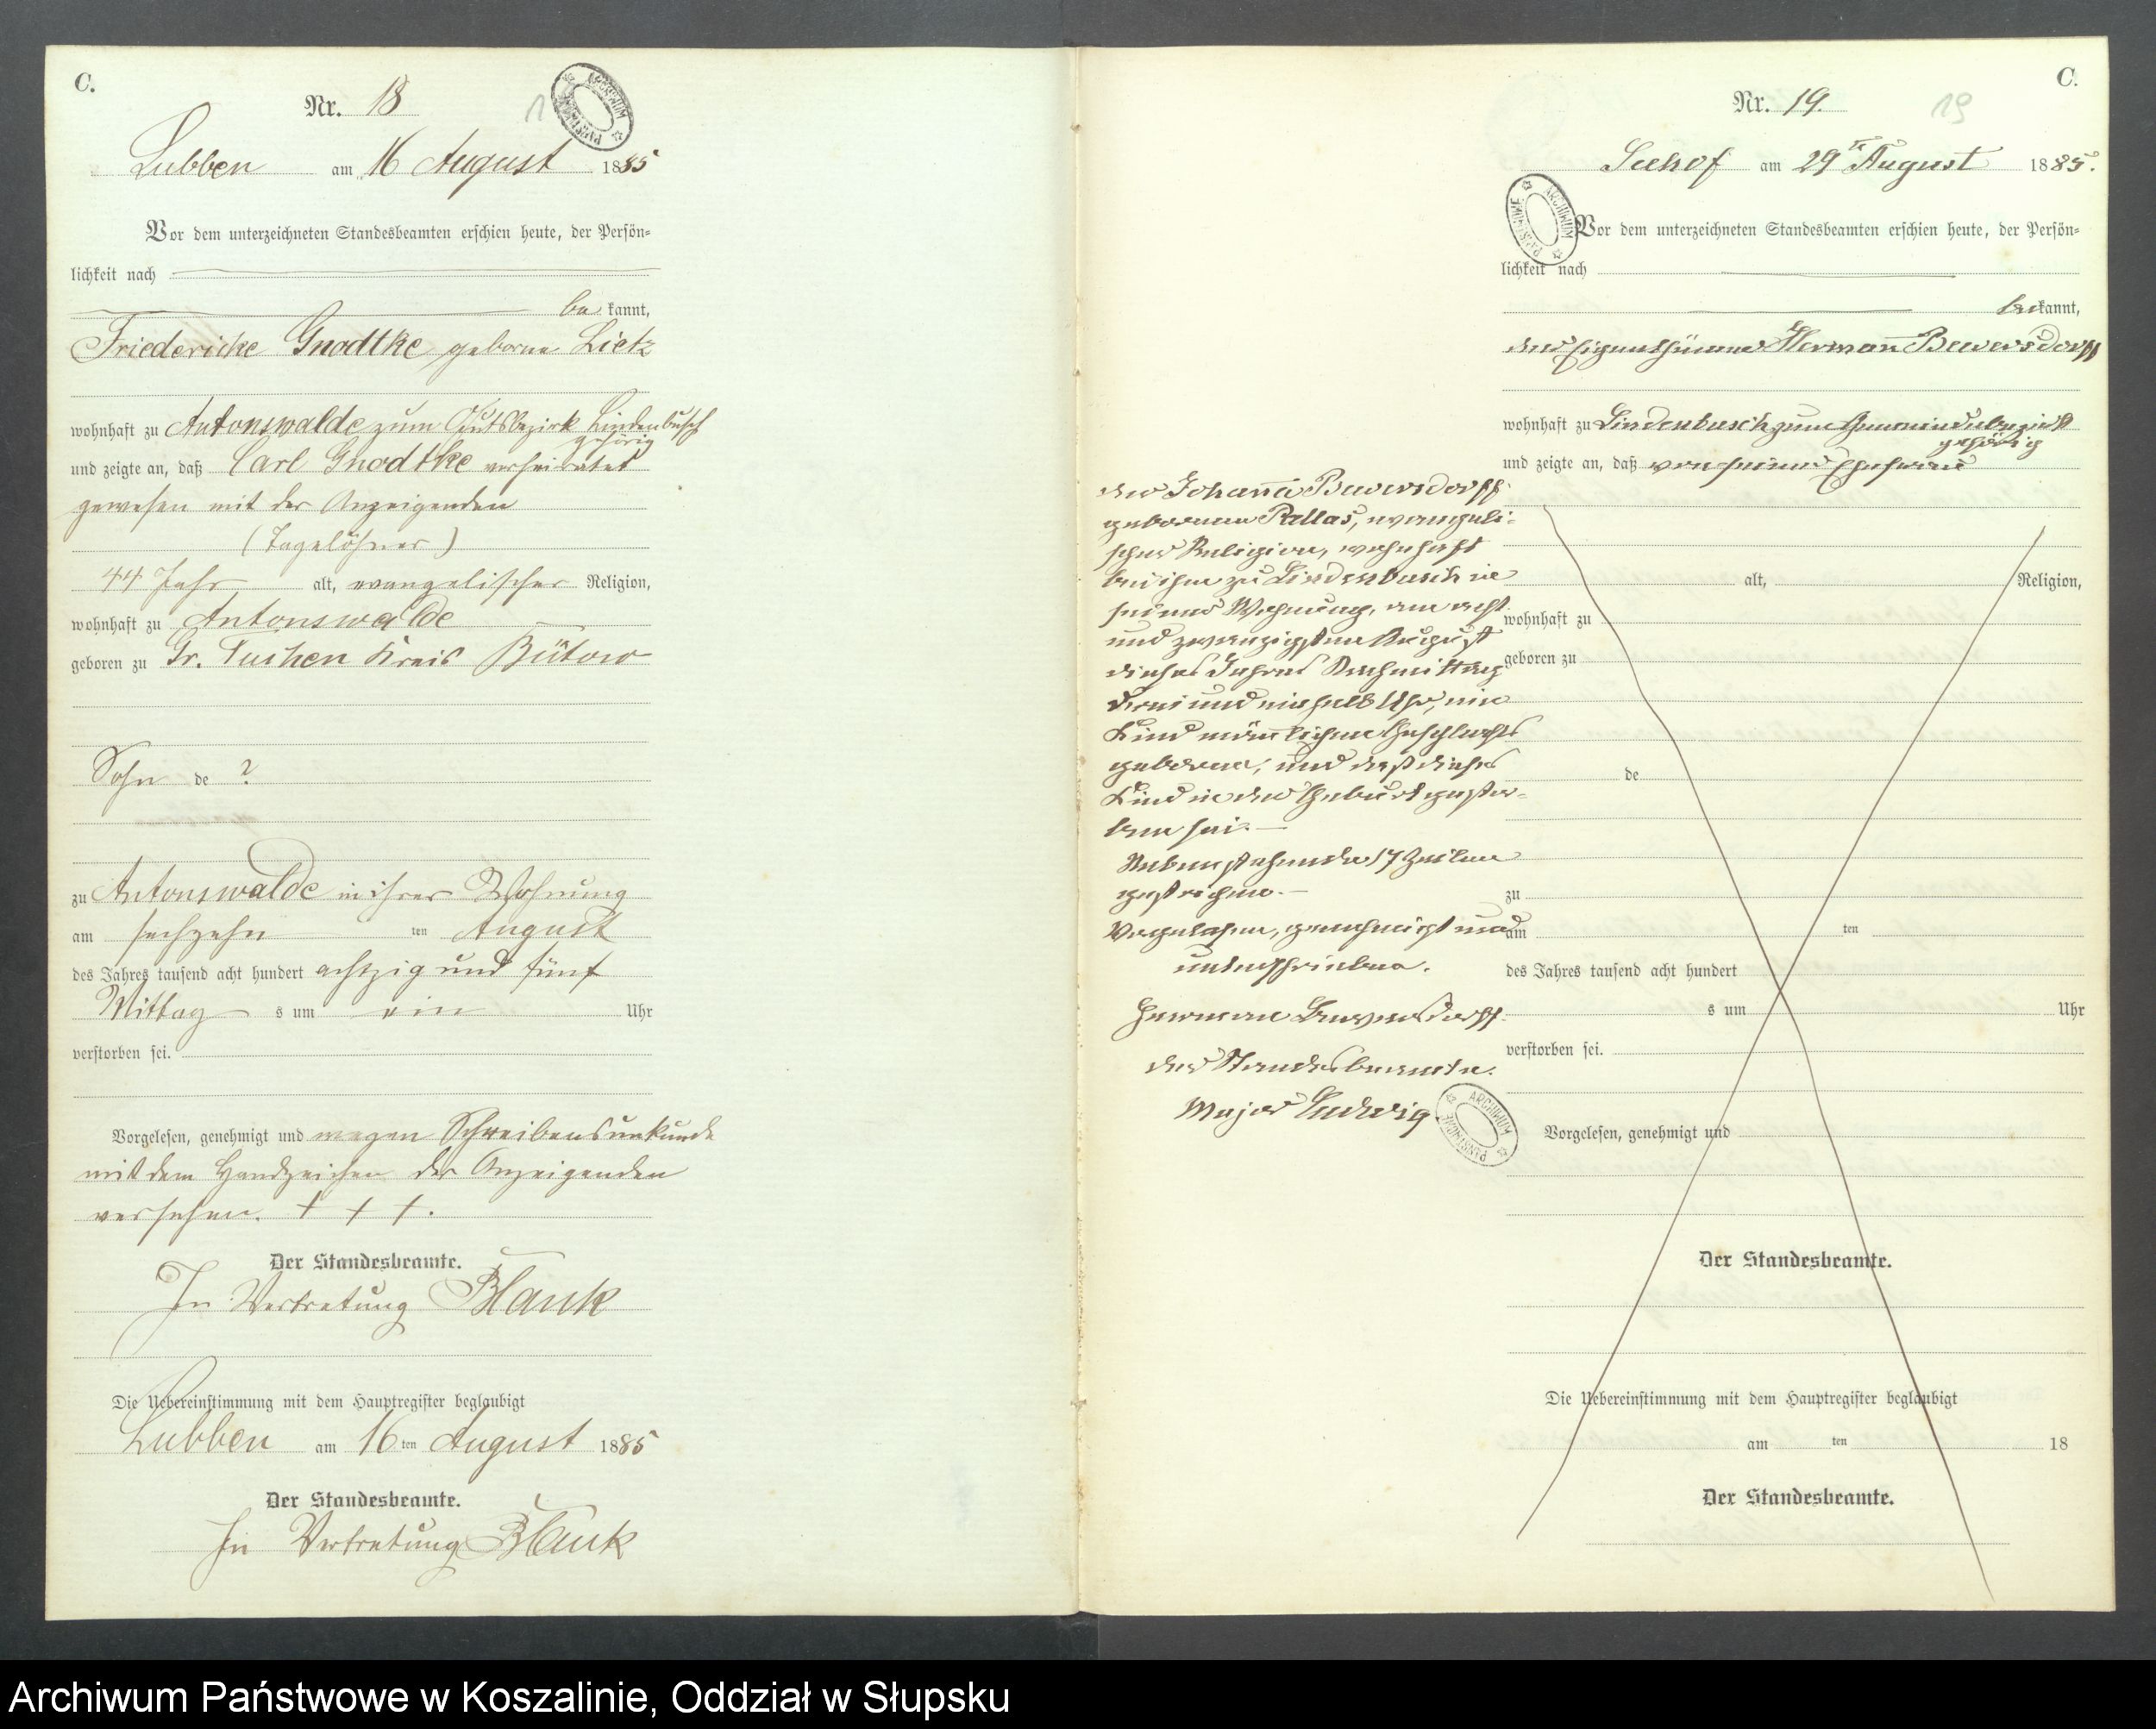 C.
Nr. 18
ARCHIWUM PAŃSTWOWE
Lubben am 16 August 1885
Vor dem unterzeichneten Standesbeamten erschien heute, der Persön-
lichkeit nach
be kannt,
Friedericke Gnodtke geborne Lietz
wohnhaft zu Antonswalde zum Gutsbezirk Lindenbusch
gehörig
und zeigte an, daß Carl Gnodtke verheirathet
gewesen mit der Anzeigenden
(Tagelöhner)
44 Jahr alt, evangelischer Religion,
wohnhaft zu Antonswalde
geboren zu Gr. Tuchen Kreis Bütow
Sohn de ?
zu Antonswalde in ihrer Wohnung
am sechzehn ten August
des Jahres tausend acht hundert achtzig und fünf
Mittag s um ein Uhr
verstorben sei.
Vorgelesen, genehmigt und wegen Schreibensunkunde
mit dem Handzeichen der Anzeigenden
versehen. + + +.
Der Standesbeamte.
In Vertretung Blank
Die Uebereinstimmung mit dem Hauptregister beglaubigt
Lubben am 16 ten August 1885
Der Standesbeamte.
In Vertretung Blank
C.
Nr. 19.
19
Seehof am 29 August 1885.
ARCHIWUM PAŃSTWOWE
Vor dem unterzeichneten Standesbeamten erschien heute, der Persön-
lichkeit nach
bekannt,
der Eigenthümer Hermann Bewersdorff
wohnhaft zu Lindenbusch zum Gemeindebezirk
gehörig
und zeigte an, daß von seiner Ehefrau
der Johanna Bewersdorff
geborenen Pallas, evangeli-
scher Religion, wohnhaft
bei ihm zu Lindenbusch in
seiner Wohnung, am acht
und zwanzigsten August
dieses Jahres Nachmittag
drei und einhalb Uhr, ein
Kind männlichen Geschlechts
geboren, und daß dieses
Kind in der Geburt gestor-
ben sei.
Nebenstehende 17 Zeilen
gestrichen.
Vorgelesen, genehmigt und
unterschrieben.
Herman Bewersdorff.
der Standesbeamte.
Major Ludwig
ARCHIWUM PAŃSTWOWE
alt, Religion,
wohnhaft zu
geboren zu
de
zu
am ten
des Jahres tausend acht hundert
s um Uhr
verstorben sei.
Vorgelesen, genehmigt und
Der Standesbeamte.
Die Uebereinstimmung mit dem Hauptregister beglaubigt
am ten 18
Der Standesbeamte.
Archiwum Państwowe w Koszalinie, Oddział w Słupsku